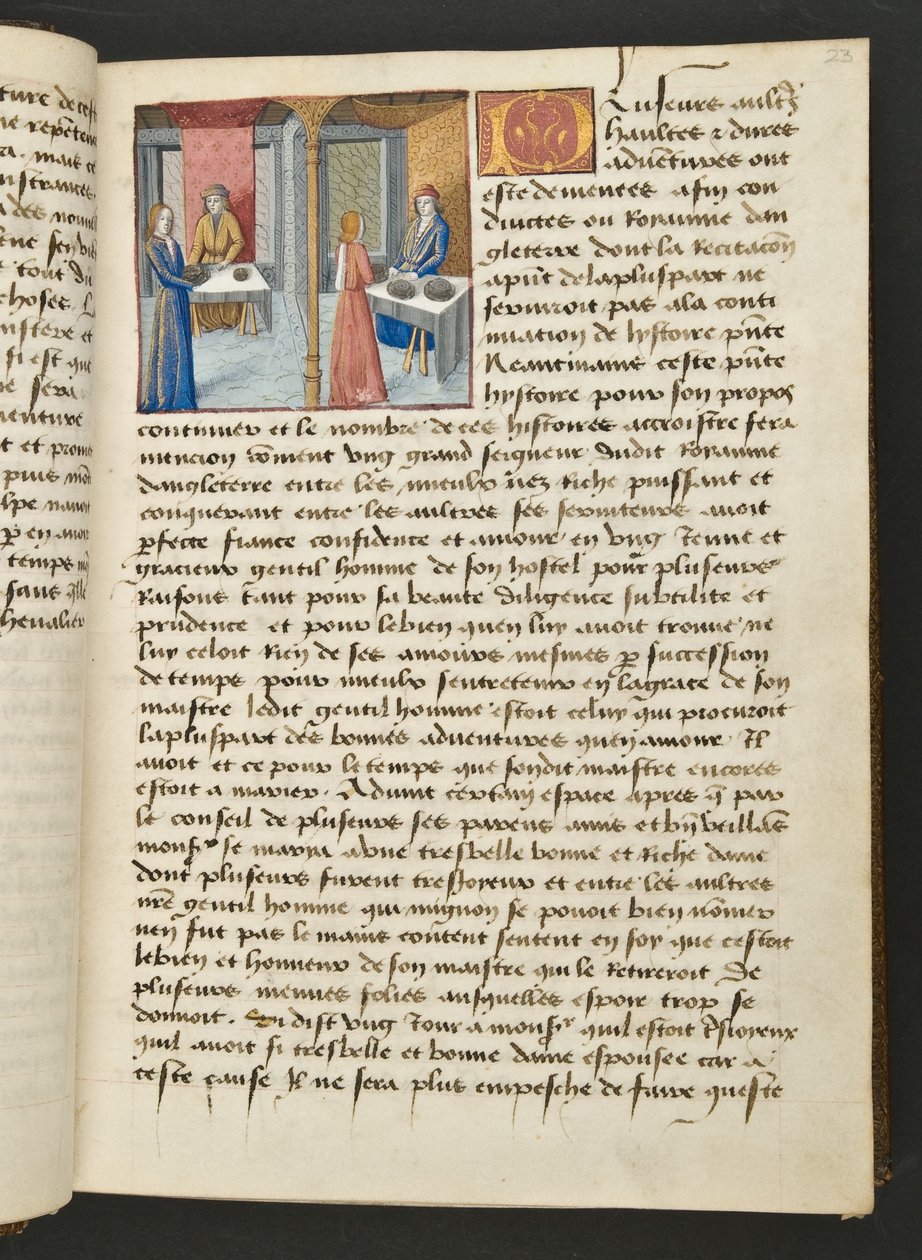 23
luseurs aultrs
haultes & dures
aduentures ont
este demenees a fin con
duictes ou Royaume dan
gleterre dont la Recitacon
a pnt de la pluspart ne
seruiroit pas a la conti
nuacion de lystoire pnte
Neantmains ceste pnte
hystoire pour son propos
continuer et le nombre de ces histoires accroistre fera
mencion coment vng grand seigneur dudit Royaume
dangleterre entre les mieulx nez Riche puissant et
conquerant entre les aultres ses seruiteurs auoit
pfecte fiance confidence et amour en vng Jeune et
gracieux gentil homme de son hostel pour pluseurs
Raisons tant pour sa beaute diligence subtilite et
prudence et pour le bien quen luy auoit trouue ne
luy celoit Rien de ses amours mesmes p succession
de temps pour mieulx sentretenir en la grace de son
maistre ledit gentil homme estoit celuy qui procuroit
la pluspart des bonnes aduentures quen amour Il
auoit et ce pour le temps que sondit maistre encores
estoit a marier. Aduint certain espace apres q par
le conseil de pluseurs ses parens amis et bn veillas
monsr se marya a vne tresbelle bonne et Riche dame
dont pluseurs furent tresJoyeux et entre les aultres
nre gentil homme qui mignon se pouoit bien nomer
nen fut pas le mains content sentent en soy que cestoit
le bien et honneur de son maistre qui le Retireroit De
pluseurs menues folies ausquelles espoir trop se
donnoit. Si dist vng Jour a monsr quil estoit tsioyeux
quil auoit si tresbelle et bonne dame espousee car a
ceste cause Il ne sera plus empesche de faire queste
ture de cest
ne
ra. mais ce
des
seruic
tout du
choses. L
et
si est que
me sera
uenture
t et
puis
temps
sans
cheualier